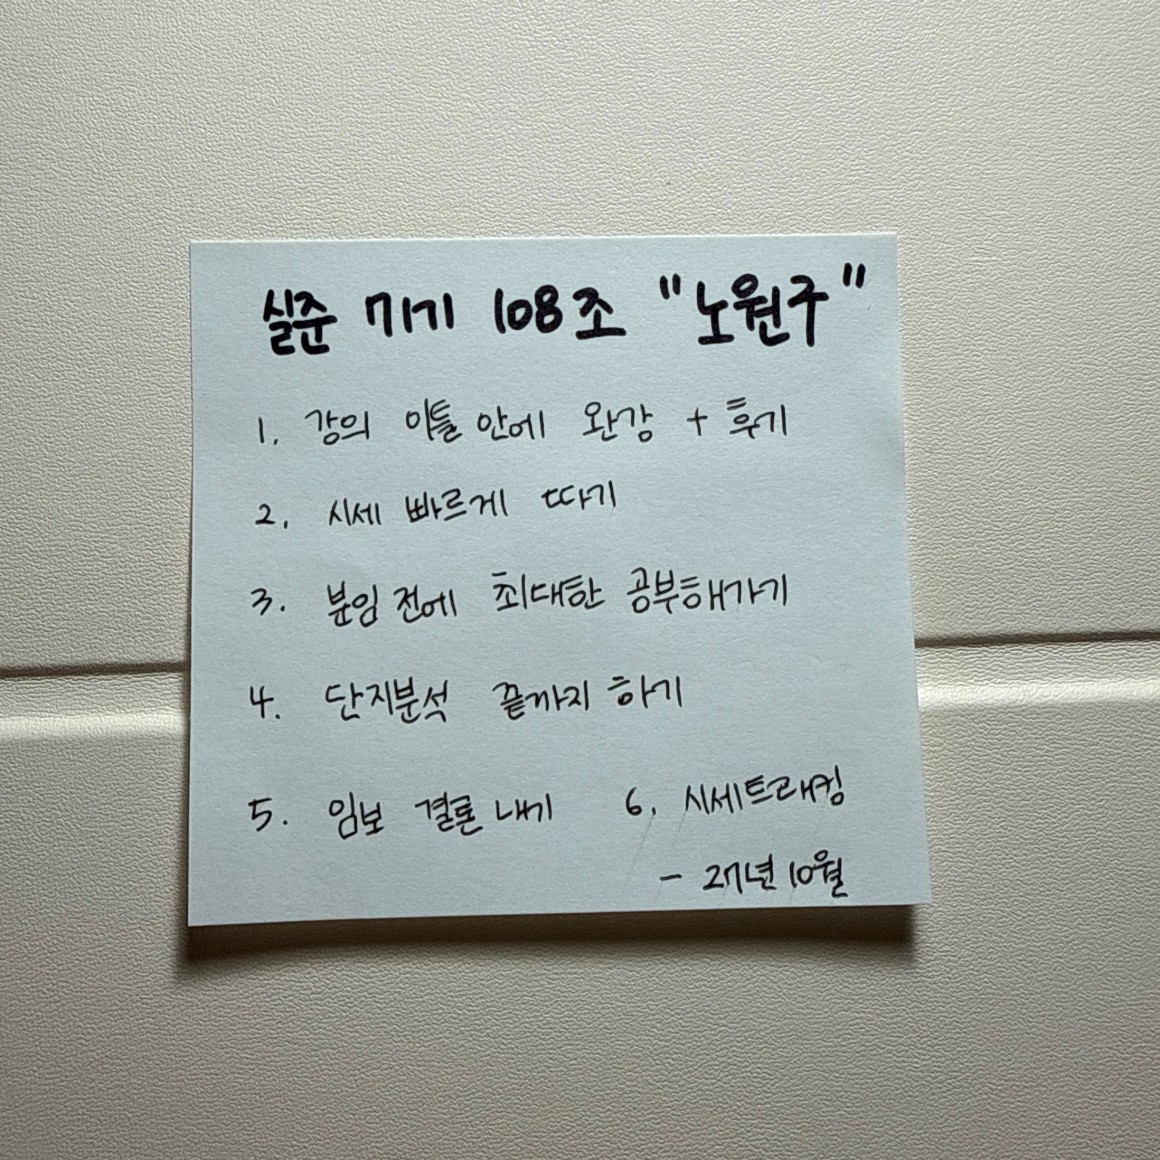 실준 71기 108조 "노원구"
1. 강의 이틀 안에 완강 + 후기
2. 시세 빠르게 따기
3. 분임 전에 최대한 공부해가기
4. 단지분석 끝까지 하기
5. 임보 결론 내기 6. 시세트래킹
- 27년 10월